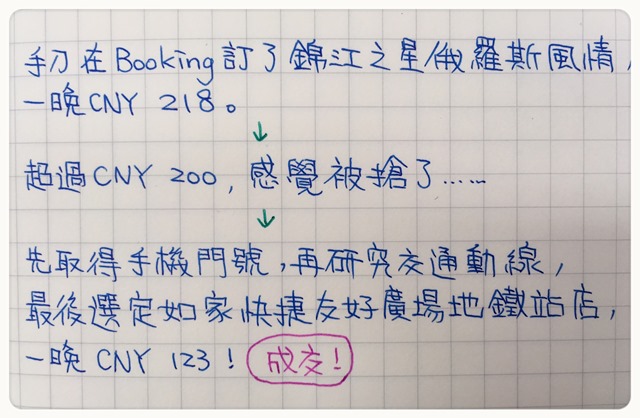 手刀在Booking訂了錦江之星俄羅斯風情，
一晚CNY 218。
↓
超過CNY 200，感覺被搶了……
↓
先取得手機門號，再研究交通動線，
最後選定如家快捷友好廣場地鐵站店，
一晚CNY 123！ 成交！